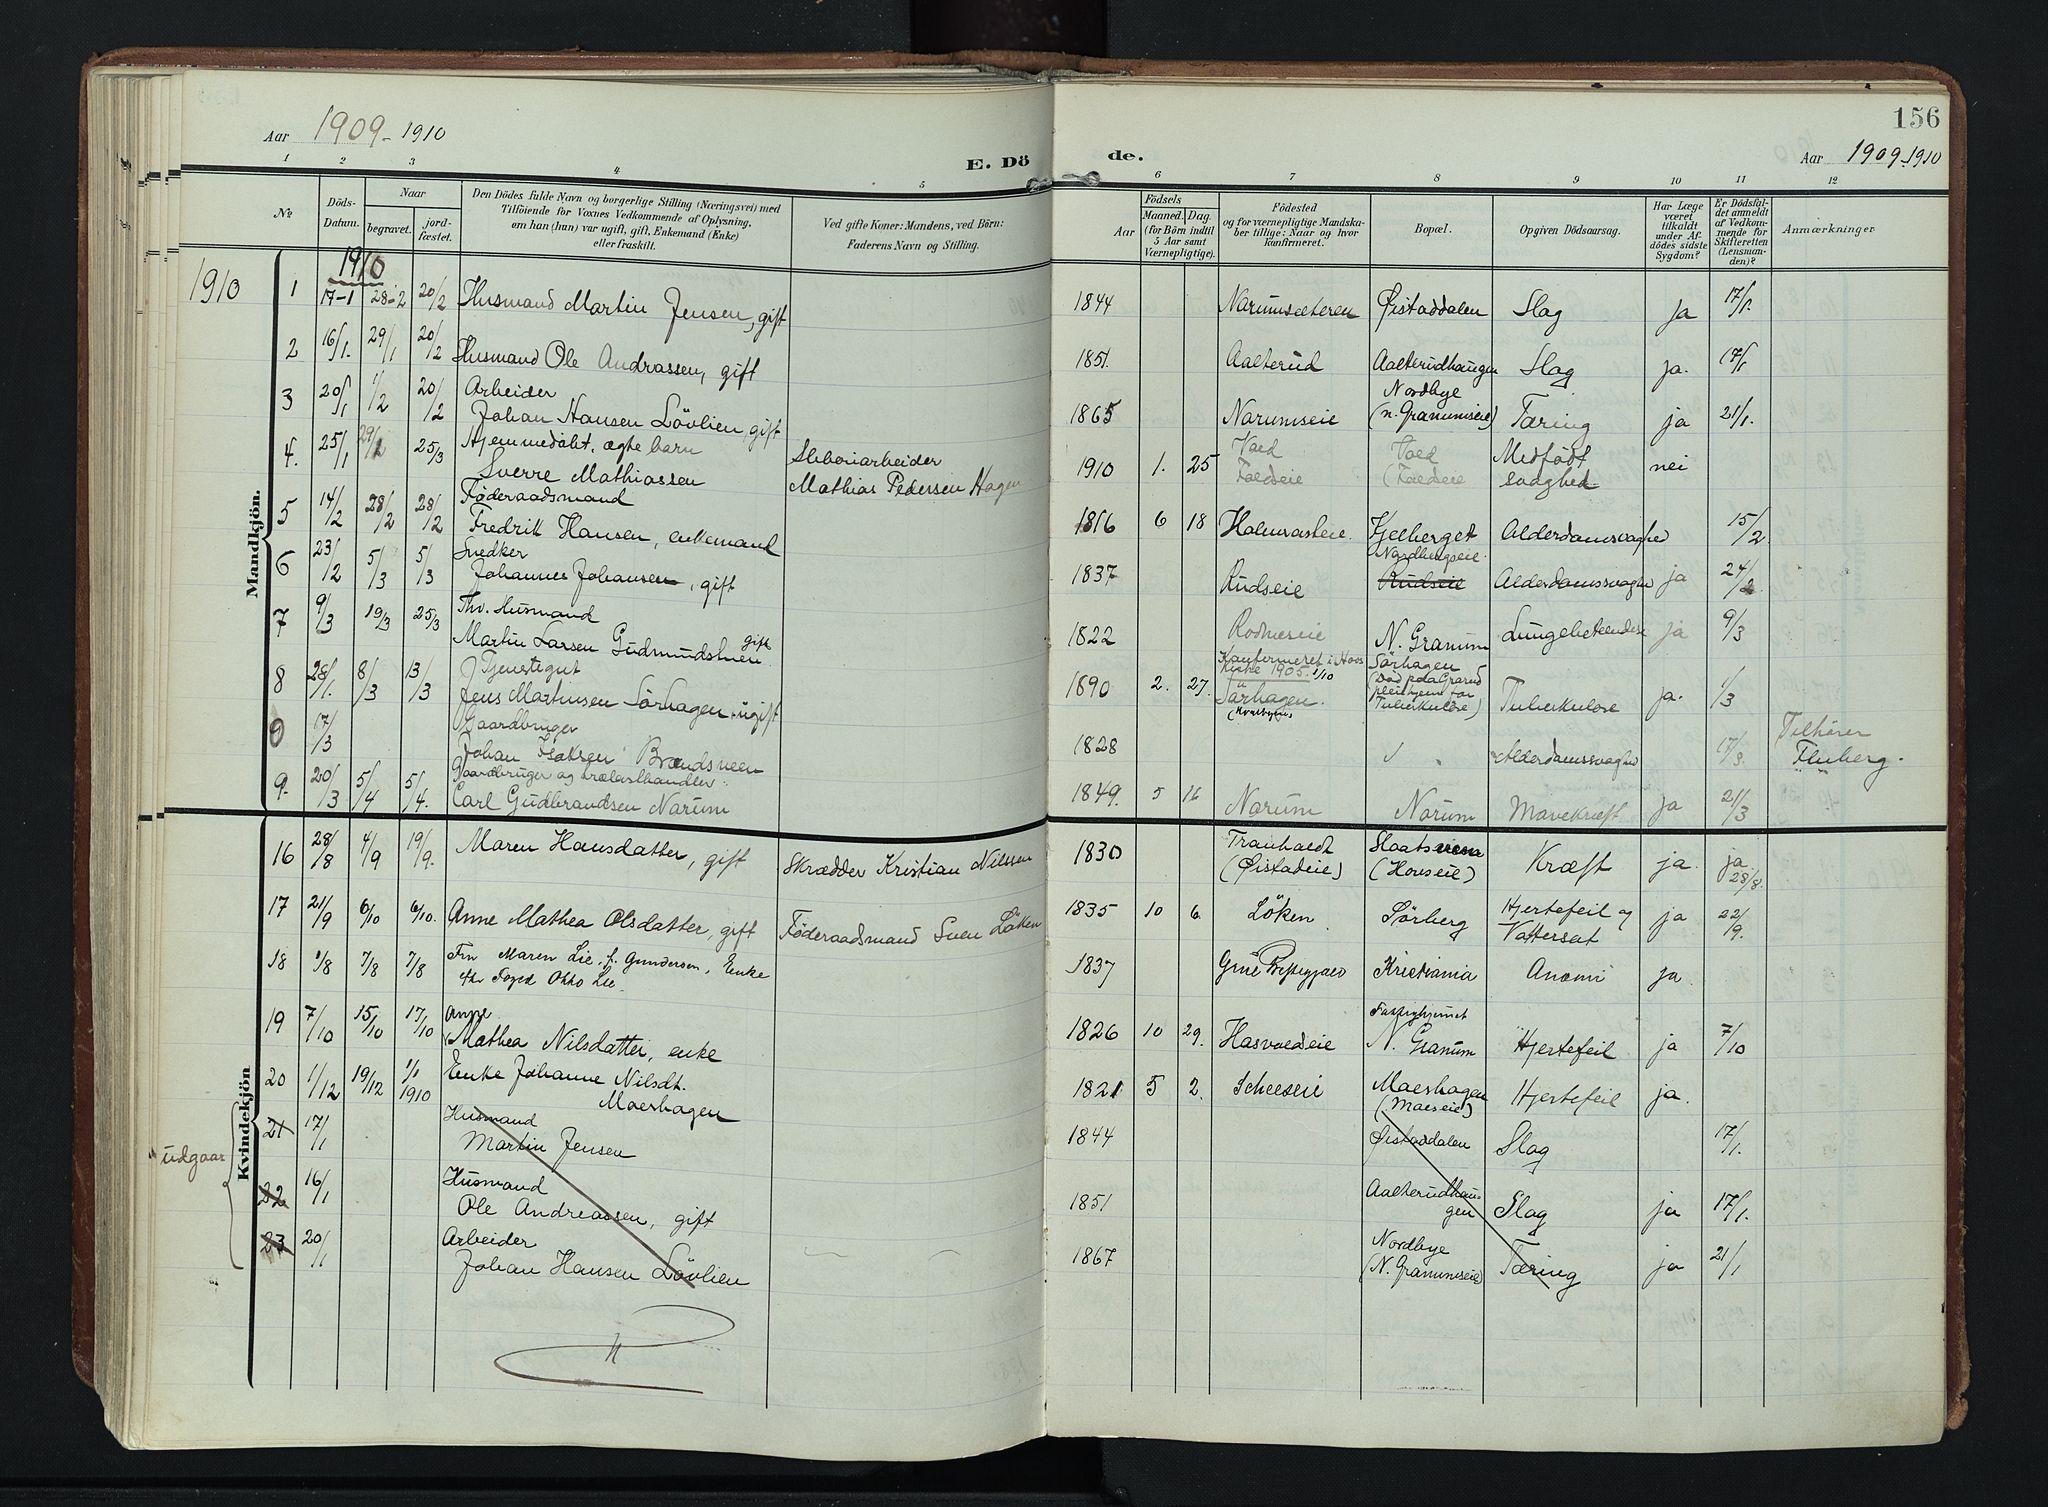 156
Aar 1909-1910
E. Dö de.
Aar 1909-1910
1 2 3 4 5 6 7 8 9 10 11 12
№
Döds-Datum.
Naar
begravet.
jord-fæstet.
Den Dödes fulde Navn og borgerlige Stilling (Næringsvei) med
Tilföiende for Voxnes Vedkommende af Oplysning,
om han (hun) var ugift, gift, Enkemand (Enke)
eller fraskilt.
Ved gifte Koner: Mandens, ved Börn:
Faderens Navn og Stilling.
Födsels
Aar
Maaned. Dag.
(for Börn indtil
5 Aar samt
Værnepligtige).
Födested
og for værnepligtige Mandska-
ber tillige: Naar og hvor
konfirmeret.
Bopæl.
Opgiven Dödsaarsag.
Har Læge
været
tilkaldt
under Af-
dödes sidste
Sygdom?
Er Dödsfal-
det anmeldt
af Vedkom-
mende for
Skifteretten
(Lensman-
den)?
Anmærkninger
Mandkjön.
1910
1910
1 17-1 28-2 20/2 Husmand Martin Jensen, gift 1844 Narumseteren Øistaddalen Slag ja 17/1.
2 16/1. 29/1 20/2 Husmand Ole Andrassen, gift 1851. Aalterud Aalterudhaugen Slag ja. 17/1
3 20/1 1/2 20/2 Arbeider
Johan Hansen Lövlien, gift 1865 Narumseie Nordbye
(n. Granumseie) Tæring ja 21/1.
4. 25/1 25/3 Hjemmedöbt, ægte barn
Sverre Mathiassen
Mathias Pedersen Hagen 1910 1. 25 Medfödt
svaghed. nei
5 14/2 28/2 28/2 Føderaadsmand
Fredrik Hansen, enkemand 1816 6 18 Kjelberget Alderdomsvaghed 15/2
6 23/2 5/3 5/3 Snedker
Johannes Johansen, gift 1837 Rudseie Nordbergseie
Rudseie Alderdomssvaghed ja 24/2
7 9/3 19/3 25/3 Fhv. Husmand
Martin Larsen gift 1822 N. Granum Lungebetændelse ja 9/3
8 28/1. 8/3 13/3 Tjenestegut
Jens Martinsen Sörhagen, ugift 1890 2. 27. Konfirmeret i Hovs
Kirke 1905. 1/10
Sörhagen. Sörhagen Tuberkulose ja. 1/3
0 17/3 Gaardbruger
Johan 1828 Alderdomssvaghed 17/3 Tilhører
Fluberg.
9. 20/3 5/4 5/4. Gaardbruger og trælasthandler
Carl Gudbrandsen Narum 1849. 5 16 Narum Narum Mavekræft ja 21/3
Kvindekjön
16 28/8 4/9 19/9. Maren Hansdatter, gift Skrædder Kristian Nilssen 1830 (Øistadeie) (Hovseie) Kræft ja. ja
28/8.
17 21/9 6/10 6/10. Anne Mathea Olsdatter, gift Föderaadsmand Sven Löken 1835 10 6. Löken Sörberg Hjertefeil og
Vattersot ja 22/9.
18 1/8 7/8 7/8 Fru Maren Lie, f. Gundersen, Enke
Foged Otto Lie. 1837 Kristiania Anæmi ja
19 7/10 15/10 17/10 Anne
Mathea Nilsdatter, enke 1826 10 29. Hasvoldeie Fattighjemmet
N. Granum Hjertefeil ja 7/10
20 1/12 19/12 1/1
1910 Enke Johanne Nilsdt.
Maerhagen 1821 5 2. Maerhagen Hjertefeil ja.
udgaar
21 17/1 Husmand
Martin Jensen 1844 Øistaddalen Slag 17/1.
22 16/1 Husmand
Ole Andreassen, gift 1851 Aalterudhau-
gen Slag ja 17/1.
23 20/1 Arbeider
Johan Hansen Lövlien 1867 Nordbye
(N. Granumseie) Tæring ja 21/1